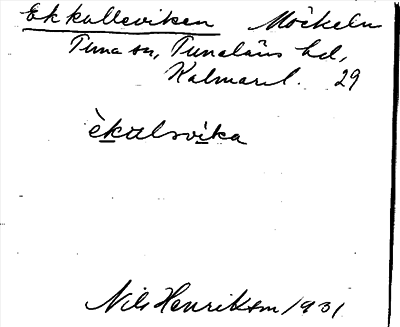 Ekkulleviken Möckeln
Tuna sn, Tunaläns hd,
Kalmar l. 29
èkulsvika
Nils Henriksson 1931